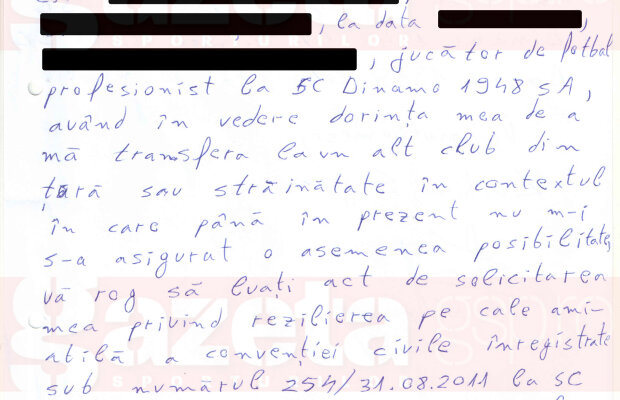 , la data
, jucător de fotbal
profesionist la SC Dinamo 1948 SA,
având în vedere dorința mea de a
mă transfera la un alt club din
țară sau străinătate în contextul
în care până în prezent nu m-i
s-a asigurat o asemenea posibilitate,
vă rog să luați act de solicitarea
mea privind rezilierea pe cale ami-
abilă a convenției civile înregistrate
sub numărul 254/31.08.2011 la SC
gazeta
SPORTURILOR